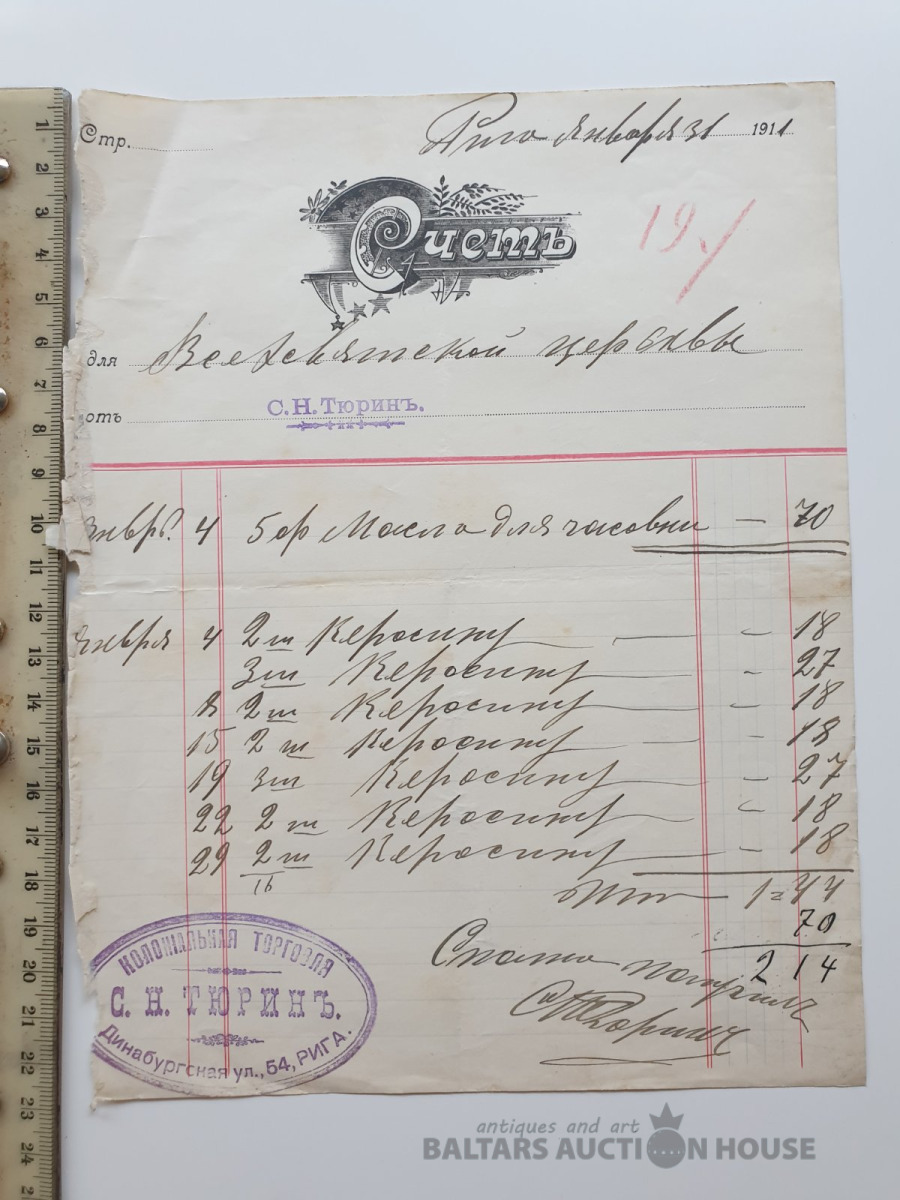 Стр.
Рига января 31 1911
Счетъ
19
для Всехсвятской церьквы
отъ С. Н. Тюринъ.
январ. 4 5 ф Масла для часовни — 70
января 4 2 ш Керосину — 18
3 ш Керосину — 27
8 2 ш Керосину — 18
15 2 ш Керосину — 18
19 3 ш Керосину — 27
22 2 ш Керосину — 18
29 2 ш Керосину — 18
16
Ито 1=44
70
2 14
Сполна получилъ
С Тюринъ
КОЛОНІАЛЬНАЯ ТОРГОВЛЯ
С. Н. ТЮРИНЪ.
Динабургская ул., 54, РИГА.
1 2 3 4 5 6 7 8 9 10 11 12 13 14 15 16 17 18 19 20 21 22 23 24
antiques and art
BALTARS AUCTION HOUSE